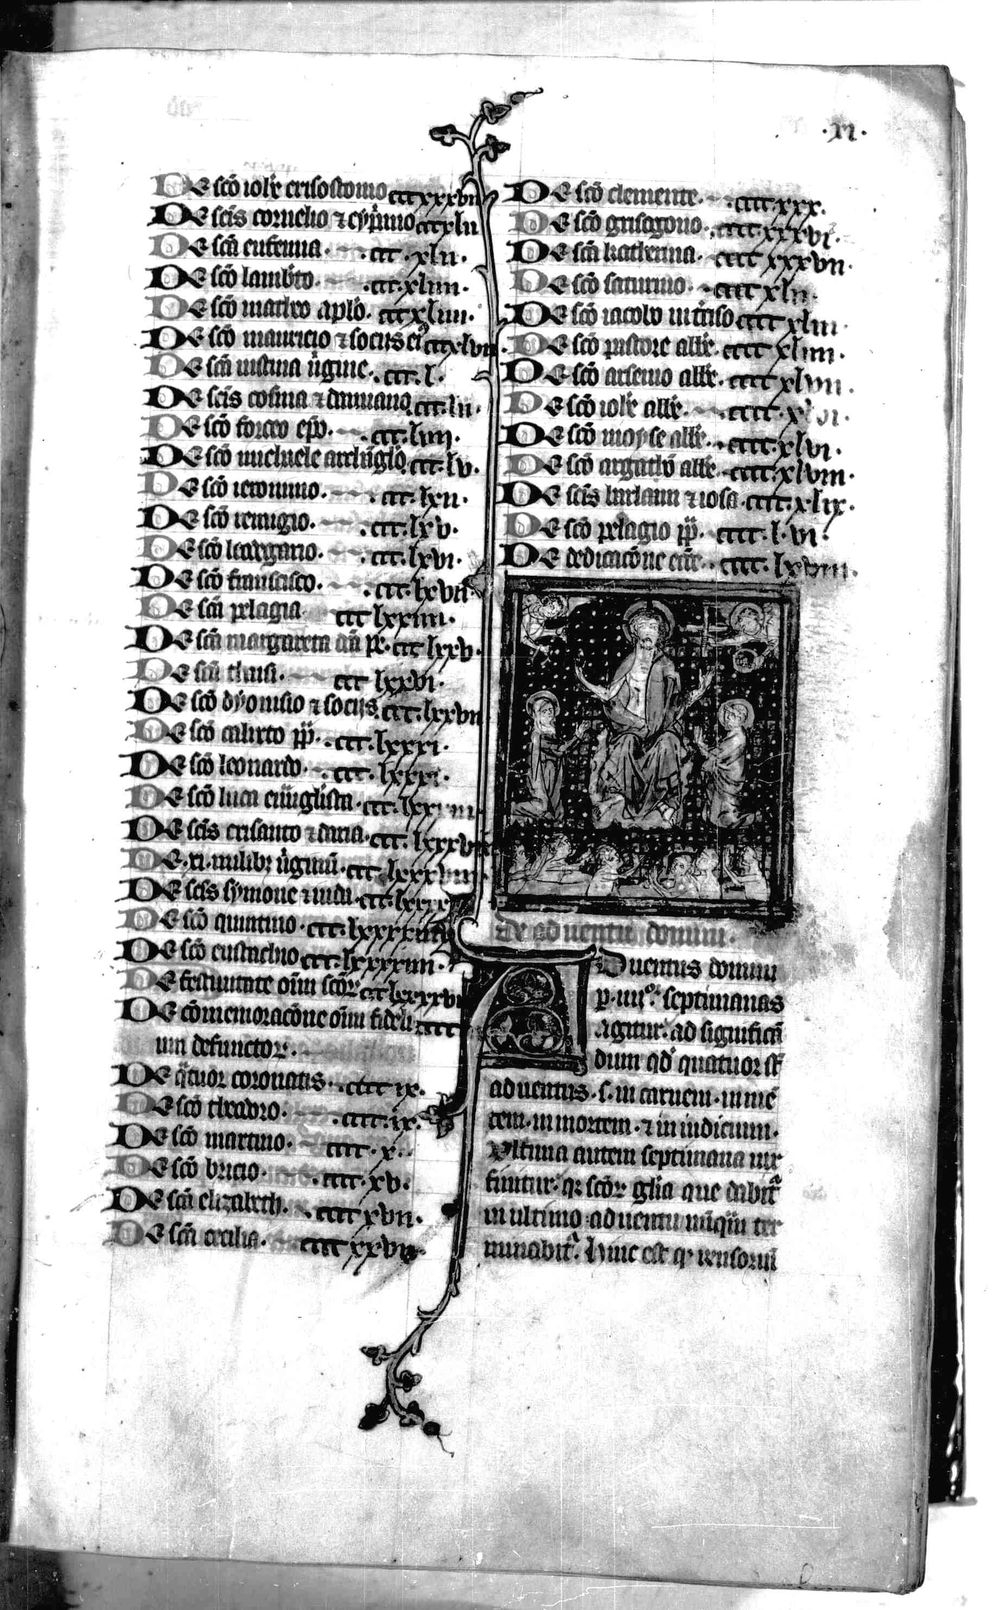 ·xi·
De scō ioħe crisostomo cccxxxvii
De scīs cornelio ⁊ cypͥano cccxlii
De scā eufemia· ccc·xlii·
De scō lambͭto· ccc·xliiii·
De scō matheo aplō· cccxliiii·
De scō mauricio ⁊ sociis eiꝰ cccxlvii·
De scā iustina ūgine· ccc·l·
De scīs cosma ⁊ damiano ccc·lii·
De scō forseo ep̄o· ccc·liiii·
De scō michaele archāglo ccc·lv·
De scō ieronimo· ccc·lxii·
De scō remigio· ccc·lxv·
De scō leodegario· ccc·lxvi·
De scō francisco· ccc·lxvii·
De scā pelagia ccc lxxiiii·
De scā margareta ccc lxxv·
De scā thaisi· ccc lxxvi·
De scō dyonisio ⁊ sociis ccc·lxxvii
De scō calixto pp̄· ccc·lxxxi·
De scō leonardo· ccc·lxxxi·
De scō luca euāglista· ccc·
De scīs crisanto ⁊ daria· ccc·lxxxvi
De·xi·milibꝫ ūginū· ccc·lxxxvii
De scīs symone ⁊ iuda ccc·lxxxx
De scō quintino· ccc·lxxxxiii
De scō eustachio ccc·lxxxxiiii·
De festiuitate oīm scōꝝ ccclxxxxvi
De cōmemoracōne oīm fideli cccc
um defunctoꝝ·
De qͣtuor coronatis· cccc ix·
De scō theodro· cccc·ix·
De scō martino· cccc·x·
De scō bricio· cccc·xv·
De scā elizabeth· cccc xvii·
De scā cecilia· cccc xxvii·
De scō clemente· cccc·xxx·
De scō grisogono· cccc·xxxvi·
De scā katherina· cccc xxxvii·
De scō saturnio· cccc xlii·
De scō iacobo intͥciso cccc xlii·
De scō pastore abb̄e· cccc xliiii·
De scō arsenio abb̄e· cccc xlvii·
De scō ioħe abb̄e· cccc·
De scō moyse abb̄e· cccc·xlvi·
De scō argathō abb̄e cccc·xlviii·
De scīs barlaam ⁊ iosa· cccc·xlix·
De scō pelagio pp̄· cccc·l·vi·
De dedicacōne ecc̄e· cccc·lxviii·
de aduentu domini·
Aduentus domini
ꝑ·iiiiᵒʳ septimanas
agitur· ad significā
dum qd̓ quatuor sūt
aduentus·s·in carnem·in mē
tem·in mortem·⁊ in iudicium·
Vltima autem septimana uix
finitur· qꝛ scōꝝ glīa que dabitᷣ
in ultimo aduentu nūqͣm ter
minabitᷣ· hinc est qͩ